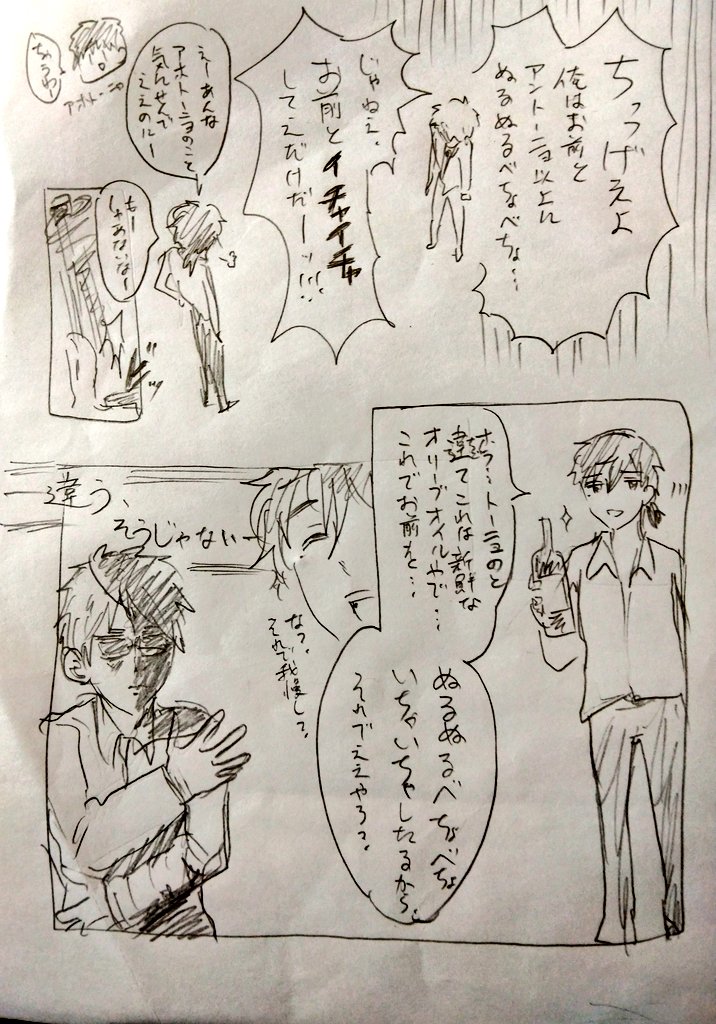 ちっげえよ
俺はお前と
アントーニョ以上に
ぬるぬるべちょべちょ…
じゃねえ、
お前とイチャイチャ
してえだけだーーッ!!!
えーあんな
アホトーニョのこと
気にせんで
ええのにー
アホトーニョ
もー
しゃあないなー
ホラ…トーニョのと
違てこれは新鮮な
オリーブオイルやで…
これでお前を…
ぬるぬるべちょべちょ
いちゃいちゃしたるから、
それでええやろ?
なっ?
それで我慢して、
違う、
そうじゃないー